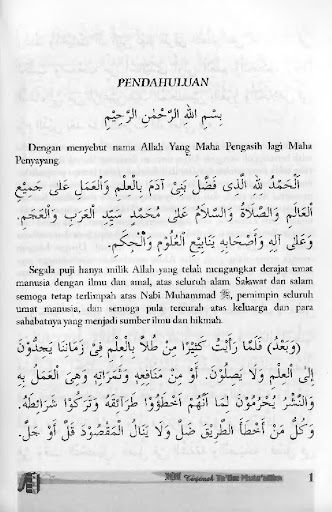 PENDAHULUAN
بِسْمِ اللهِ الرَّحْمٰنِ الرَّحِيْمِ
Dengan menyebut nama Allah Yang Maha Pengasih lagi Maha
Penyayang
اَلْحَمْدُ لِلّٰهِ الَّذِى فَضَّلَ بَنِىْ آدَمَ بِالْعِلْمِ وَالْعَمَلِ عَلَى جَمِيْعِ
الْعَالَمِ وَالصَّلَاةُ وَالسَّلَامُ عَلَى مُحَمَّدٍ سَيِّدِ الْعَرَبِ وَالْعَجَمِ.
وَعَلَى آلِهِ وَأَصْحَابِهِ يَنَابِيْعِ الْعُلُوْمِ وَالْحِكَمِ.
Segala puji hanya milik Allah yang telah mengangkat derajat umat
manusia dengan ilmu dan amal, atas seluruh alam. Salawat dan salam
semoga tetap terlimpah atas Nabi Muhammad ﷺ, pemimpin seluruh
umat manusia, dan semoga pula tercurah atas keluarga dan para
sahabatnya yang menjadi sumber ilmu dan hikmah.
(وَبَعْدُ) فَلَمَّا رَأَيْتُ كَثِيْرًا مِنْ طُلَّابِ الْعِلْمِ فِىْ زَمَانِنَا يَجِدُّوْنَ
إِلَى الْعِلْمِ وَلَا يَصِلُوْنَ. أَوْ مِنْ مَنَافِعِهِ وَثَمَرَاتِهِ وَهِىَ الْعَمَلُ بِهِ
وَالنَّشْرُ يُحْرَمُوْنَ لِمَا أَنَّهُمْ أَخْطَؤُوْا طَرَائِقَهُ وَتَرَكُوْا شَرَائِطَهُ.
وَكُلُّ مَنْ أَخْطَأَ الطَّرِيْقَ ضَلَّ وَلَا يَنَالُ الْمَقْصُوْدَ قَلَّ أَوْ جَلَّ.
Terjemah Ta'lim Muta'allim 1